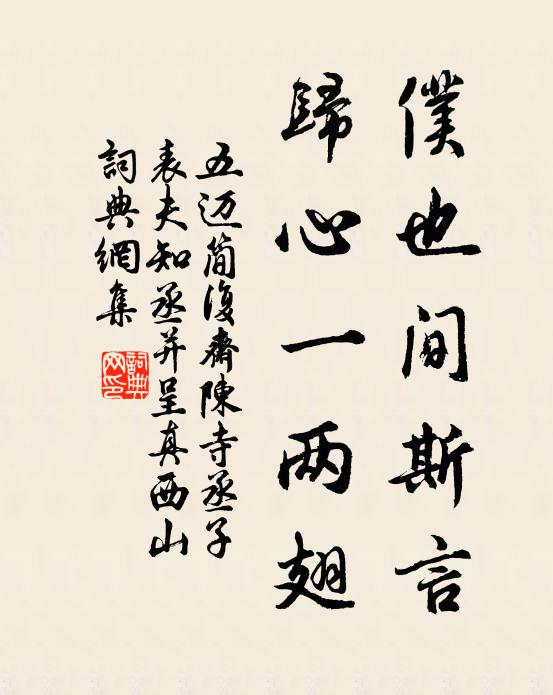 僕也間斯言
歸心一两翅
五迈簡復齋陳寺丞子
表夫知丞并呈真西山
詞典網集
詞典网印